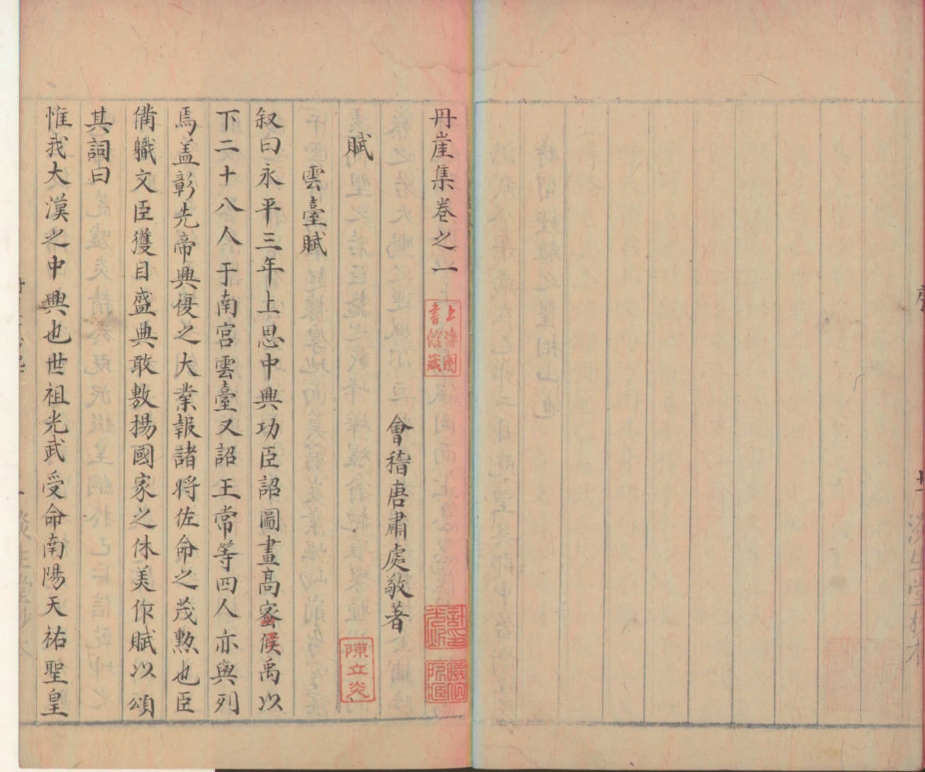 丹崖集卷之一
上海圖書館藏
會稽唐肅處敬著
陳立炎
賦
雲臺賦
叙曰永平三年上思中興功臣詔圖畫高蜜侯禹以
下二十八人于南宮雲臺又詔王常等四人亦與列
焉盖彰先帝興復之大業報諸將佐命之茂勲也臣
備軄文臣獲目盛典敢敷揚國家之休美作賦以頌
其詞曰
惟我大漢之中興也世祖光武受命南陽天祐聖皇